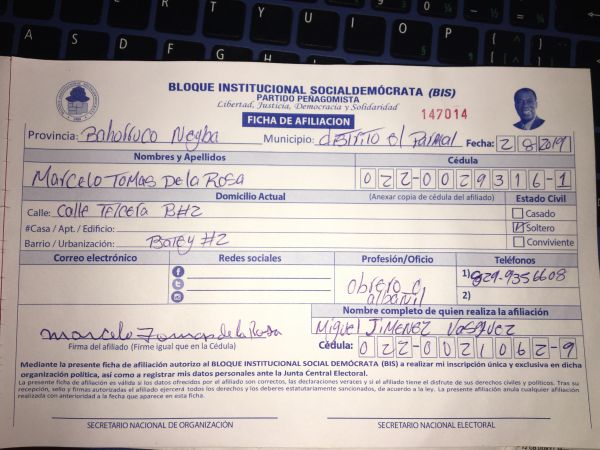 BLOQUE INSTITUCIONAL SOCIALDEMÓCRATA (BIS)
PARTIDO PEÑAGOMISTA
Libertad, Justicia, Democracia y Solidaridad
FICHA DE AFILIACION
147014
Provincia: Bahorruco Neyba Municipio: distrito el Palmal Fecha: 2 8 2019
Nombres y Apellidos Cédula
Marcelo Tomas De la Rosa 022-0029316-1
Domicilio Actual (Anexar copia de cédula del afiliado) Estado Civil
Calle: Calle Tercera B#2 Casado
#Casa / Apt. / Edificio: Soltero
Barrio / Urbanización: Batey #2 Conviviente
Correo electrónico Redes sociales Profesión/Oficio Teléfonos
obrero o albanil
1) 829-935 6608
2)
Nombre completo de quien realiza la afiliación
Marcelo Tomas de la Rosa Miguel JIMENEZ VASQUEZ
Firma del afiliado (Firme igual que en la Cédula) Cédula: 022-0021062-9
Mediante la presente ficha de afiliación autorizo al BLOQUE INSTITUCIONAL SOCIAL DEMÓCRATA (BIS) a realizar mi inscripción única y exclusiva en dicha
organización política, así como a registrar mis datos personales ante la Junta Central Electoral.
La presente ficha de afiliación es válida si los datos ofrecidos por el afiliado son correctos, las declaraciones veraces y si el afiliado tiene el disfrute de sus derechos civiles y políticos. Tras su
recepción, sello y firmas autorizadas el afiliado ejercerá todos los derechos y los deberes estatutariamente sancionados, de acuerdo a la ley. La presente afiliación anula cualquier afiliación
realizada con anterioridad a la fecha que aparece en esta ficha.
SECRETARIO NACIONAL DE ORGANIZACIÓN SECRETARIO NACIONAL ELECTORAL